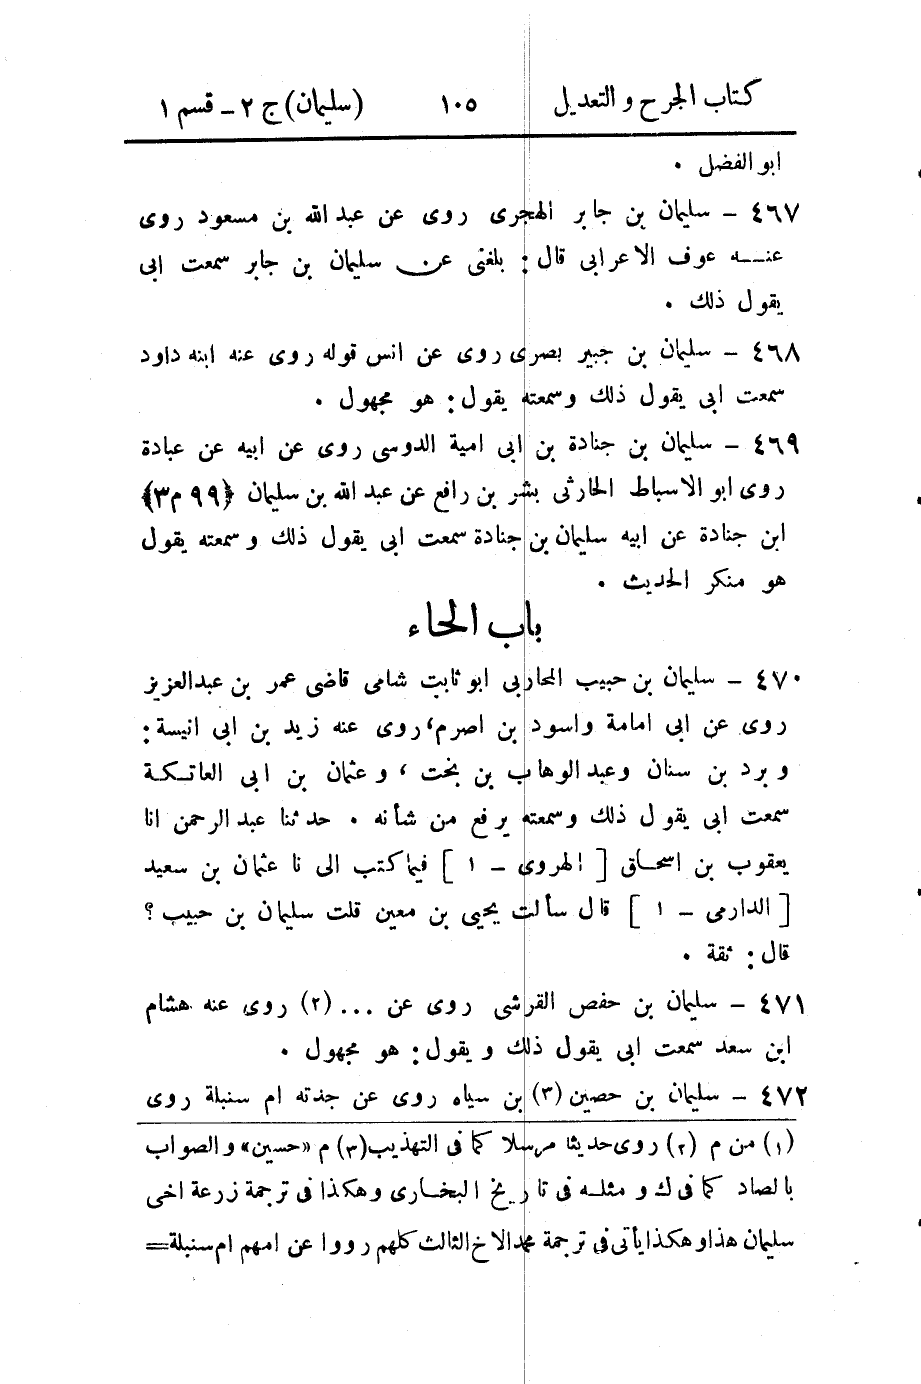 كتاب الجرح والتعديل ١٠٥ (سليمان) ج ٢ - قسم ١
ابو الفضل .
٤٦٧ - سليمان بن جابر الهجرى روى عن عبد الله بن مسعود روى
عنه عوف الاعرابى قال : بلغنى عن سليمان بن جابر سمعت ابى
يقول ذلك .
٤٦٨ - سليمان بن جبير بصرى روى عن انس قوله روى عنه ابنه داود
سمعت ابى يقول ذلك وسمعته يقول : هو مجهول .
٤٦٩ - سليمان بن جنادة بن ابى امية الدوسى روى عن ابيه عن عبادة
روى ابو الاسباط الحارثى بشر بن رافع عن عبد الله بن سليمان ﴿٩٩ م٣﴾
ابن جنادة عن ابيه سليمان بن جنادة سمعت ابى يقول ذلك وسمعته يقول
هو منكر الحديث .
باب الحاء
٤٧٠ - سليمان بن حبيب المحاربى ابو ثابت شامى قاضى عمر بن عبدالعزيز
روى عن ابى امامة واسود بن اصرم، روى عنه زيد بن ابى انيسة :
وبرد بن سنان وعبد الوهاب بن بخت ، وعثمان بن ابى العاتكة
سمعت ابى يقول ذلك وسمعته يرفع من شأنه . حدثنا عبد الرحمن انا
يعقوب بن اسحاق [ الهروى - ١ ] فيما كتب الى نا عثمان بن سعيد
[ الدارمى - ١ ] قال سألت يحيى بن معين قلت سليمان بن حبيب ؟
قال : ثقة .
٤٧١ - سليمان بن حفص القرشى روى عن ... (٢) روى عنه هشام
ابن سعد سمعت ابى يقول ذلك ويقول : هو مجهول .
٤٧٢ - سليمان بن حصين (٣) بن سياه روى عن جدته ام سنبلة روى
(١) من م (٢) روى حديثا مرسلا كما فى التهذيب (٣) م «حسين» والصواب
بالصاد كما فى ك ومثله فى تاريخ البخارى وهكذا فى ترجمة زرعة اخى
سليمان هذا وهكذا يأتى فى ترجمة محمد الاخ الثالث كلهم رووا عن امهم ام سنبلة =